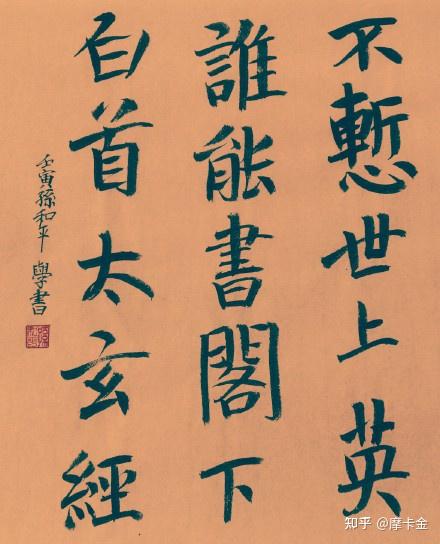 不慙世上英
誰能書閣下
白首太玄經
壬寅孫和平學書
知乎 @摩卡金